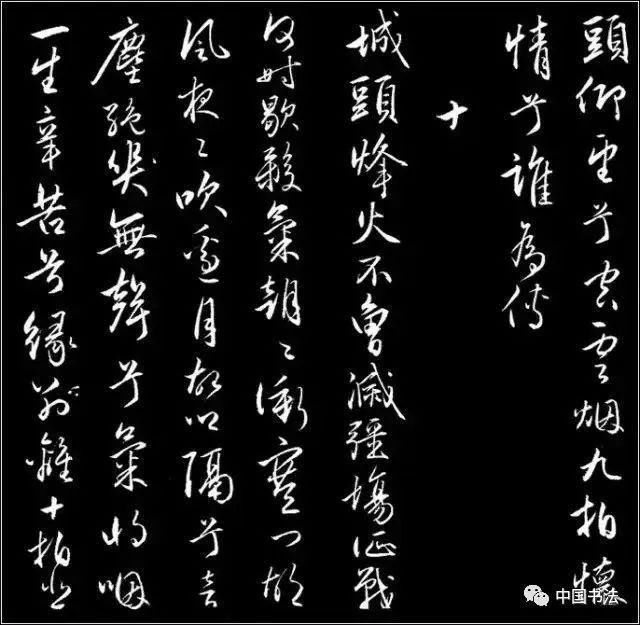 頭仰望兮空雲烟九拍懷
情兮誰為傳
十
城頭烽火不曾滅疆場征戰
何時歇殺氣朝々衝塞門胡
風夜々吹邊月故鄉隔兮音
塵絕哭無聲兮氣將咽
一生辛苦兮緣別離十拍悲
中国书法